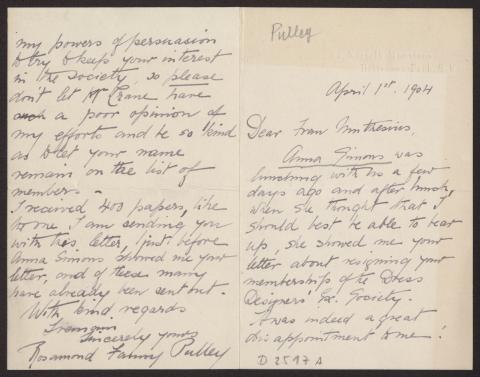 Pulley
April 1st. 1904
Dear Frau Muthesius,
Anna Simons was
lunching with us a few
days ago and after lunch,
when she thought that I
should best be able to bear
up, she showed me your
letter about resigning your
membership of the Dress
Designers' Ex. Society.
It was indeed a great
disappointment to me!
D 2597 A
my powers of persuasion
to try & keep your interest
in the Society, so please
don't let Mr Crane have
such a poor opinion of
my efforts and be so kind
as to let your name
remain on the list of
members –
I received 400 papers, like
the one I am sending you
with this letter, just before
Anna Simons showed me your
letter, and of these many
have already been sent out.
With kind regards
I remain
Sincerely yours
Rosamond Fanny Pulley